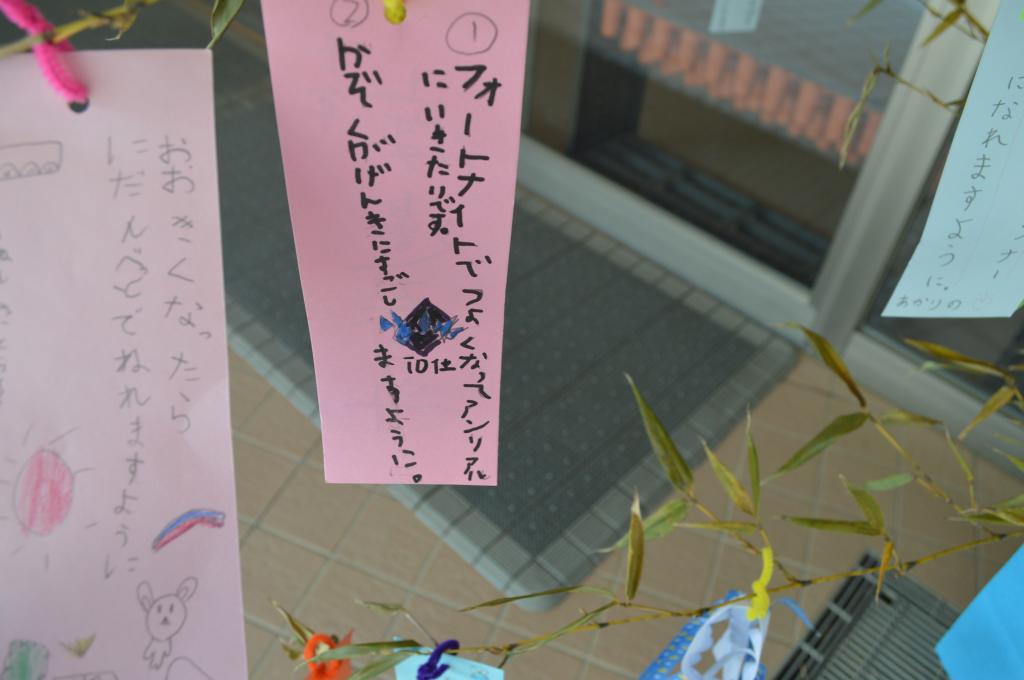 ① フォートナイトでつよくなってアンリアル
にいきたいです。
② かぞくがげんきにすごし
ますように。
10位
おおきくなったら
にだんべどでねれますように
になれますように。
あかりの